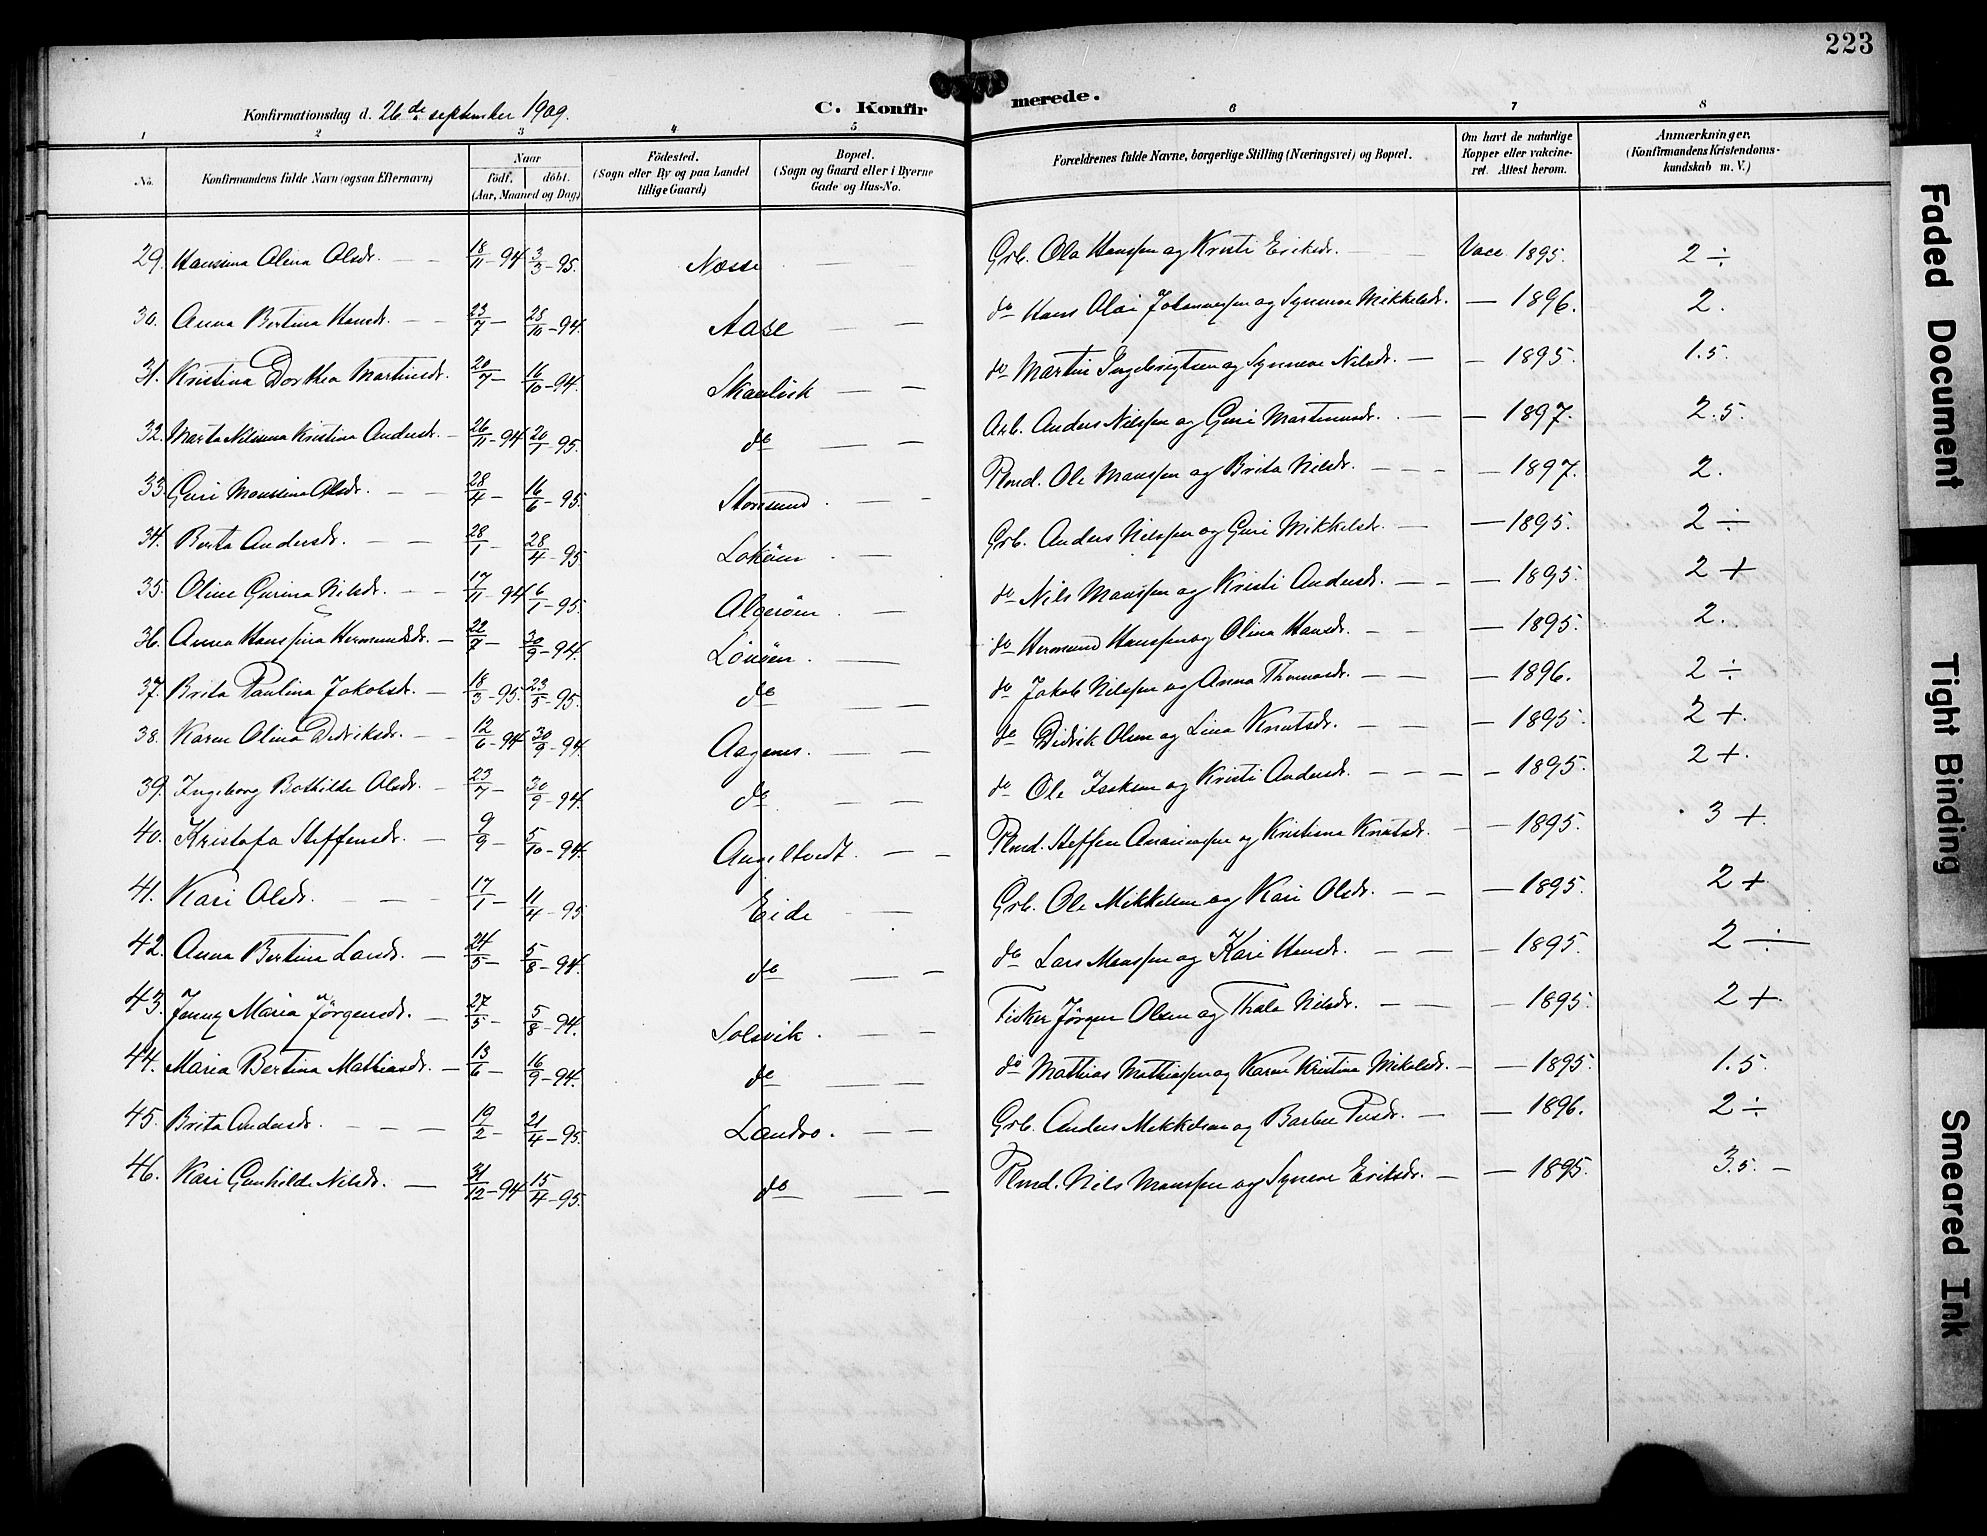 223
Konfirmationsdag d. 26de september 1909.
C. Konfirmerede.
1 2 3 4 5 6 7 8
No. Konfirmandens fulde Navn (ogsaa Efternavn) Naar födt. döbt. (Aar, Maaned og Dag) Födested. (Sogn eller By og paa Landet tillige Gaard) Bopæl. (Sogn og Gaard eller i Byerne Gade og Hus-No. Forældrenes fulde Navne, borgerlige Stilling (Næringsvei) og Bopæl. Om havt de naturlige Kopper eller vakcineret. Attest herom. Anmærkninger. (Konfirmandens Kristendomskundskab m. V.)
29. Hansina Olina Olsdr. — — 18/11 - 94 3/3 - 95. Næsse — Grb. Ola Hanssen og Kristi Eriksdr. — — Vacc 1895. 2 ÷
30. Anna Bertina Hansdr. — — 23/7 — 28/10 - 94. Aase — — do Hans Olai Johannessen og Synneve Mikkelsdr. — 1896. 2.
31. Kristina Dorthea Martinsdr. 20/7 — 16/10 - 94. Skaalvik — — do Martin Ingebrigtsen og Synneve Nilsdr. — — 1895. 1.5.
32. Marta Nilsina Kristina Andersdr. — 26/11 - 94 20/1 - 95. do — — Arb. Anders Nilssen og Guri Martinusdr. — — 1897. 2.5.
33. Guri Monssina Olsdr. — — 28/4 — 16/6 - 95. Storesund. — — Plmd. Ole Monssen og Brita Nilsdr. — — — — 1897. 2.
34. Berta Andersdr. — — 28/1 — 28/4 - 95. Lokøen — — Grb. Anders Nilssen og Guri Mikkelsdr. — — 1895. 2 ÷
35. Oline Gurina Nilsdr. — — 17/11 - 94 6/1 - 95. Algerøen. — do Nils Monssen og Kristi Andersdr. — — — 1895. 2 +
36. Anna Hanssina Hermundsdr. — 22/7 — 30/9 - 94. Lønøen. — do Hermund Hanssen og Olina Hansdr. — — — 1895. 2.
37. Brita Paulina Jakobsdr. — 18/3 - 95. 23/5 - 95. do — — do Jakob Nilssen og Anna Thomasdr. — — — 1896. 2 ÷
38. Karen Olina Didriksdr. — — 12/6 - 94 30/9 - 94. Aagenes. — — do Didrik Olsen og Lina Knutsdr. — — — 1895. 2 +.
39. Ingeborg Bothilde Olsdr. — 23/7 — 30/9 - 94. do — — do Ole Isaksen og Kristi Andersdr. — — — — 1895. 2 +.
40. Kristofa Steffensdr. — 9/9 — 5/10 - 94. Angeltvedt. — — Plmd. Steffen og Kristiana Knutsdr. — — 1895. 3 +.
41. Kari Olsdr. — — — 17/1 — 11/4 - 95 Eide — — Grb. Ole Mikkelsen og Kari Olsdr. — — — 1895. 2 +
42. Anna Bertina Larsdr. — 24/5 — 5/8 - 94. do — — do Lars Monssen og Kari Hansdr. — — — 1895. 2 ÷
43. Jenny Maria Jørgensdr. — 27/5 — 5/8 - 94. Solsvik. — — Fisker Jørgen Olsen og Thale Nilsdr. — — — 1895. 2 +
44. Maria Bertina Mathiasdr. — 13/6 — 16/9 - 94. do — — do Mathias Mathiassen og Karen Kristina Mikalsdr. — — 1895. 1.5.
45. Brita Andersdr. — — — 19/2 — 21/4 - 95. Landro. — — Grb. Anders Mikkelsen og Barbro Persdr. — — 1896. 2 ÷
46. Kari Gunhilde Nilsdr. — 31/12 - 94 15/4 - 95. do — — Plmd. Nils Monssen og Synneve Eriksdr. — — 1895. 3.5. —
Faded Document
Tight Binding
Smeared Ink